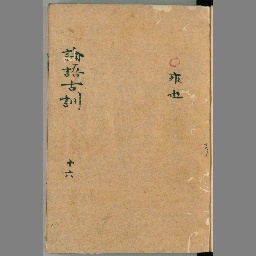 雍也
論語古訓
十六